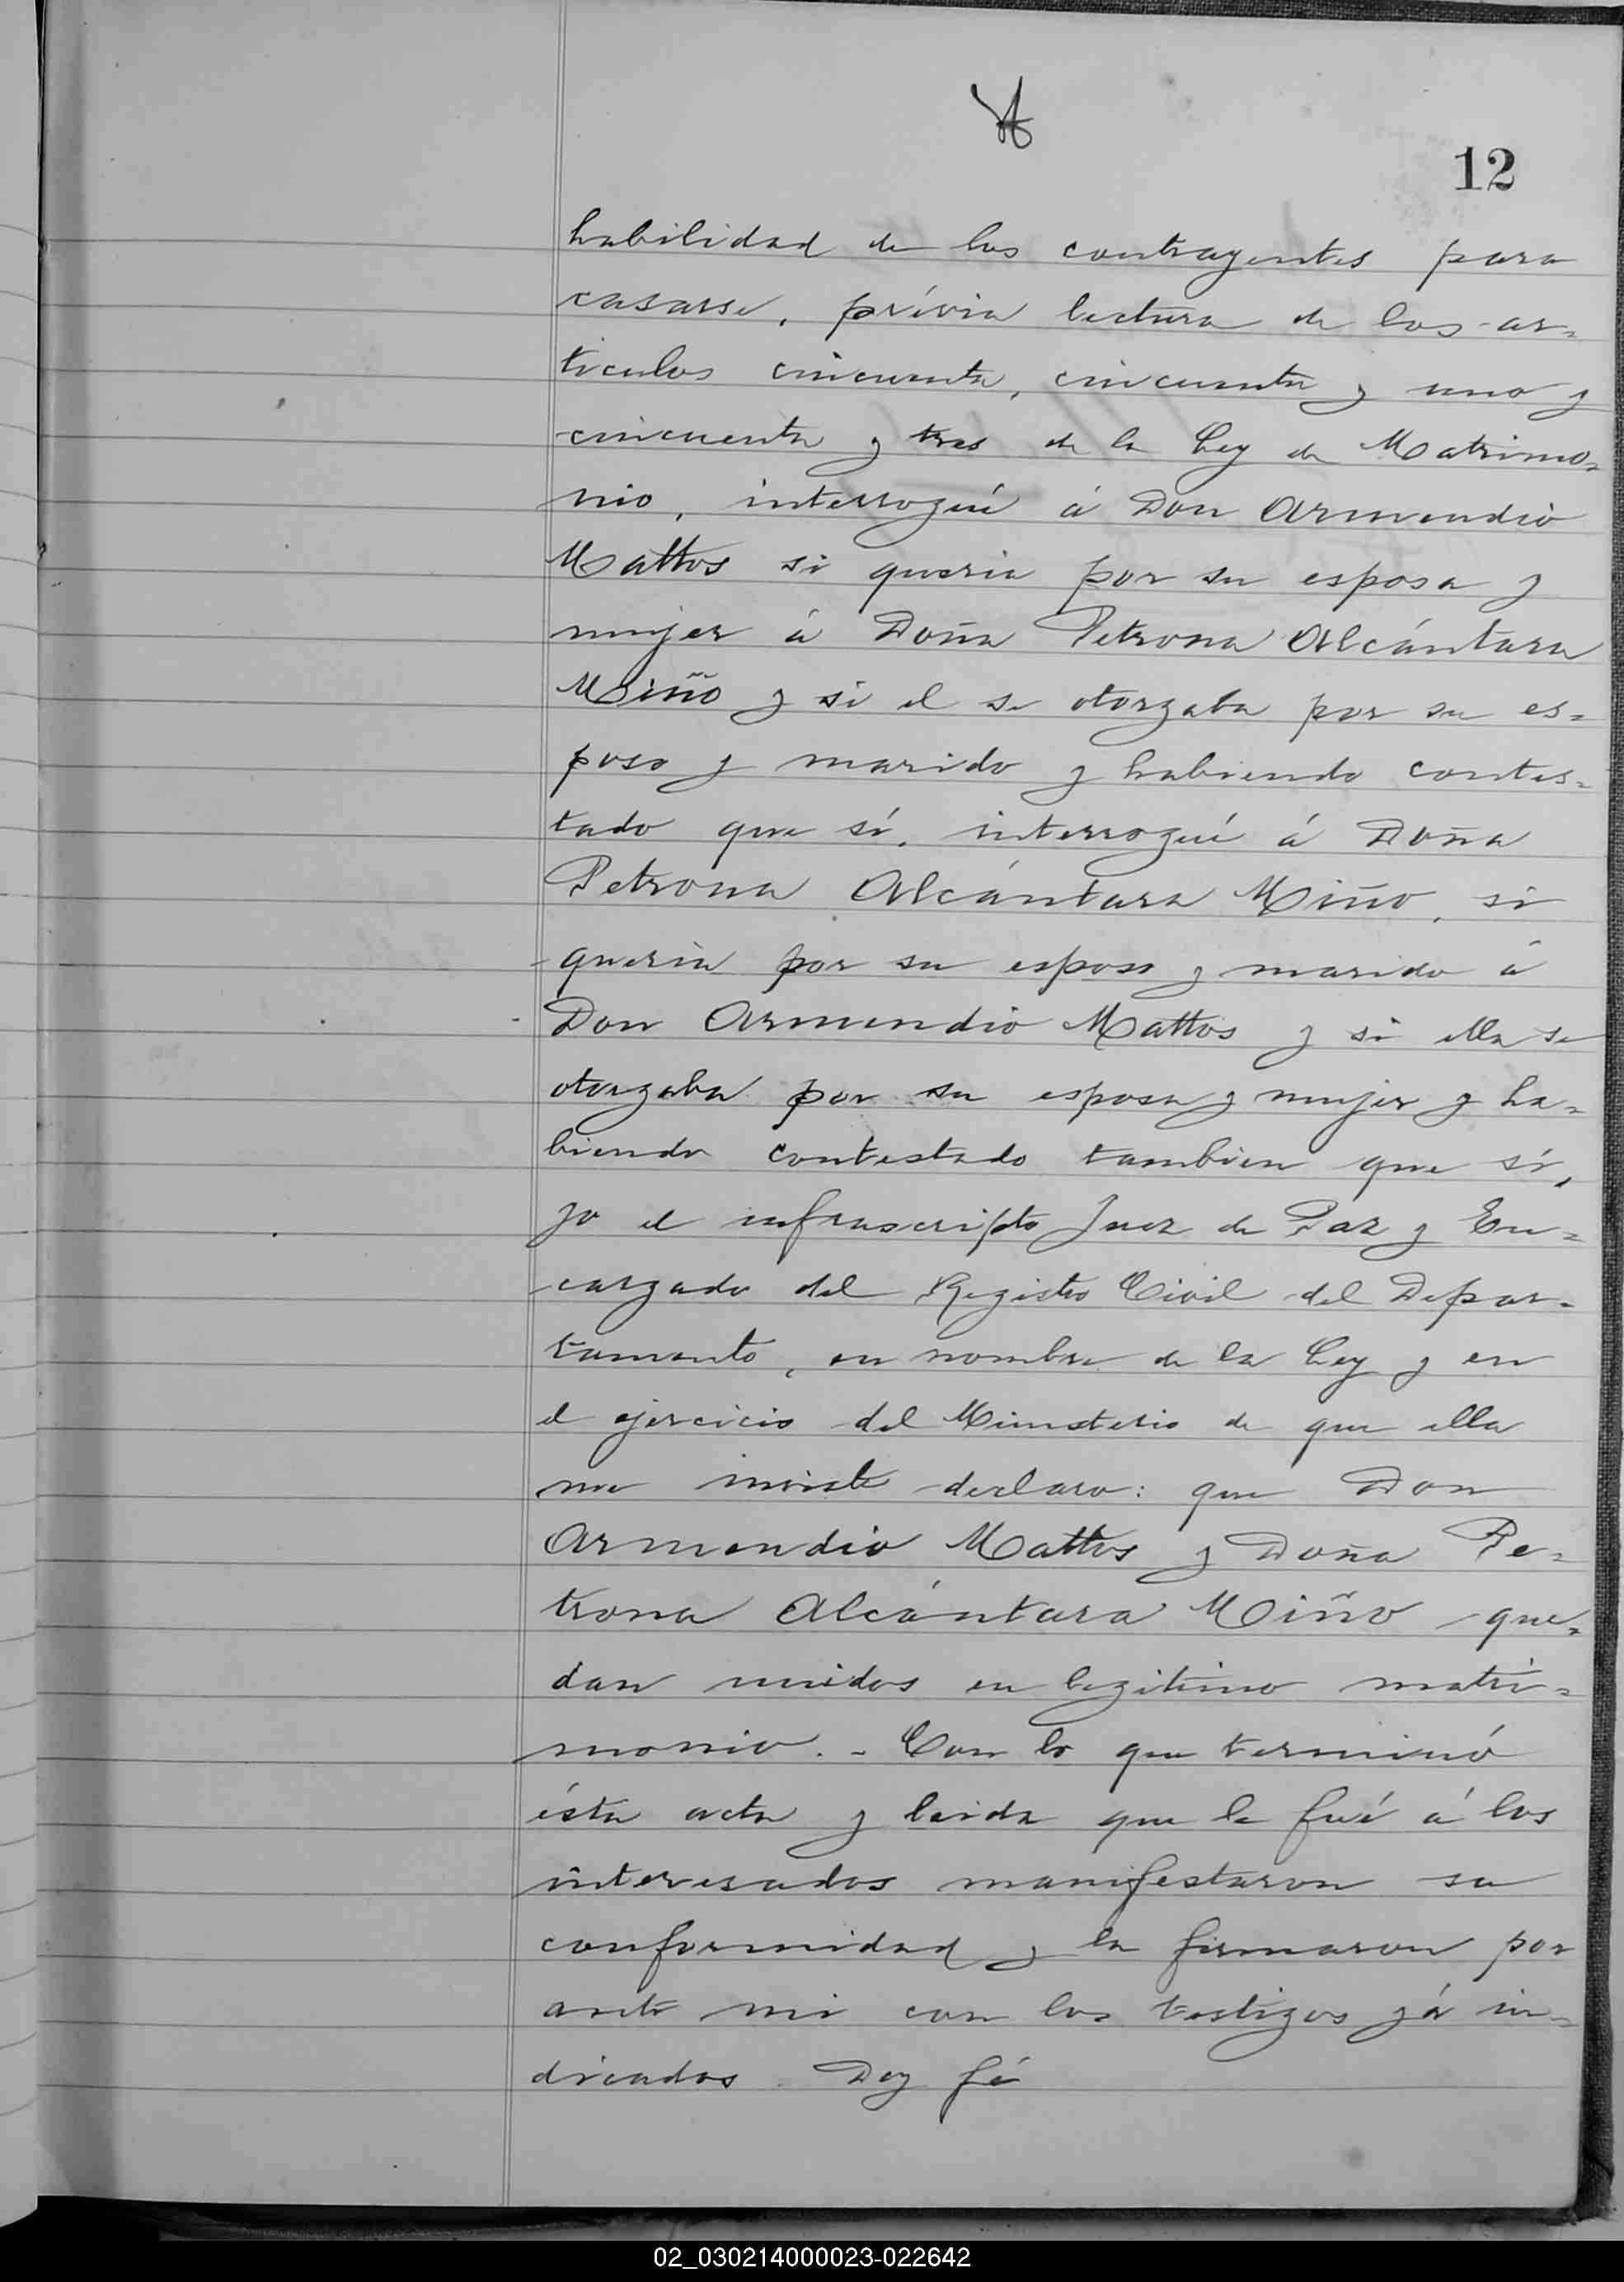 12
habilidad de los contrayentes para
casarse, prévia lectura de los ar=
ticulos cincuenta, cincuenta y uno y
cincuenta y tres de la Ley de Matrimo=
nio, interrogué á Don Armendio
Mattos si queria por su esposa y
mujer á Doña Petrona Alcántara
Miño y si el se otorgaba por su es=
poso y marido y habiendo contes=
tado que sí, interrogué á Doña
Petrona Alcántara Miño, si
queria por su esposo y marido á
Don Armendio Mattos y si ella se
otorgaba por su esposa y mujer y ha=
biendo contestado tambien que sí,
yo el infrascripto Juez de Paz y En=
cargado del Registro Civil del Depar=
tamento, en nombre de la Ley y en
el ejercicio del Ministerio de que ella
me inviste declaro: que Don
Armendio Mattos y Doña Pe=
trona Alcántara Miño que=
dan unidos en legitimo matri=
monio. - Con lo que terminó
ésta acta y leida que le fué á los
interesados manifestaron su
conformidad y la firmaron por
ante mi con los testigos yá in=
dicados. Doy fé
02_030214000023-022642